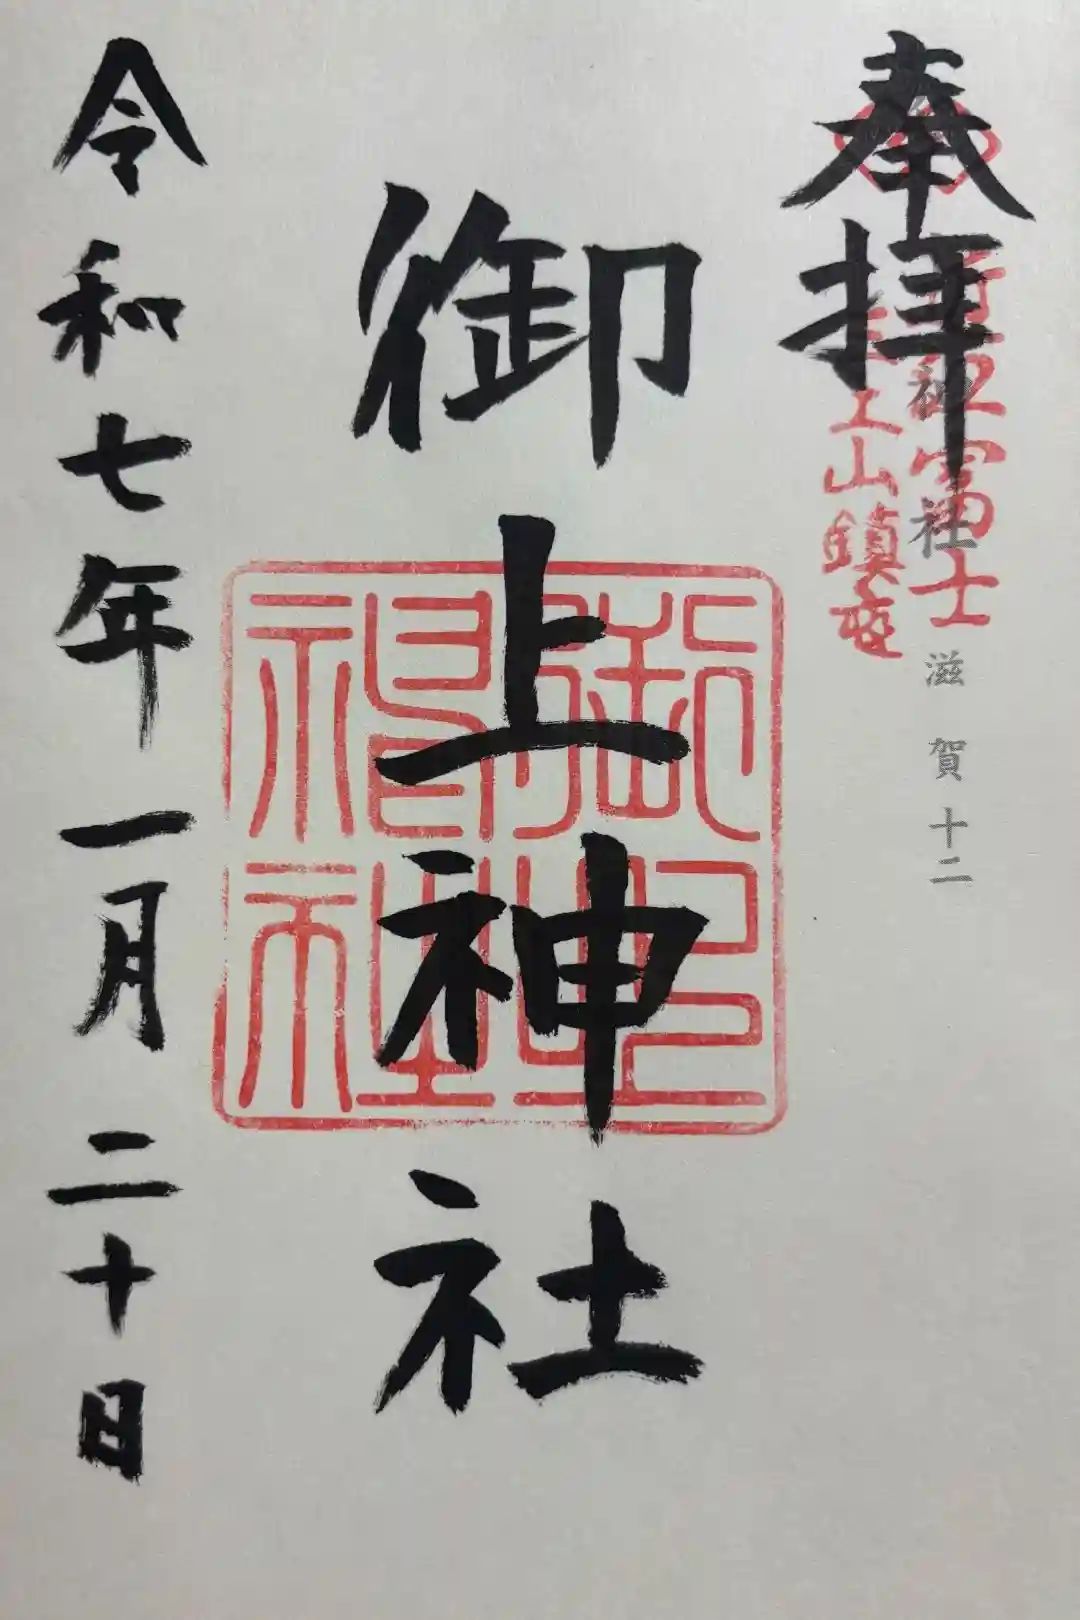 奉拝
近江富士
三上山鎮座
神社 滋賀十二
御上神社
令和七年一月二十日